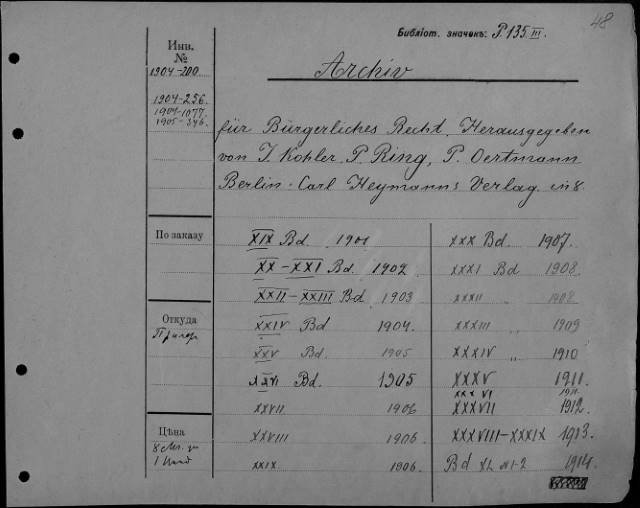 48
Библіот. значекъ: P.135 III.
Инв. №
1904-200
1904-256.
1904-1077
1905-346.
Archiv
für Bürgerliches Recht. Herausgegeben
von J. Kohler, P. Ring, P. Oertmann
Berlin. Carl Heymanns Verlag. in 8.
По заказу
XIX Bd. 1901
XX-XXI Bd. 1902
XXII-XXIII Bd 1903
Откуда
XXIV Bd 1904.
XXV Bd. 1905
XXVI Bd. 1905
XXVII 1906
Цѣна
XXVIII 1906.
XXIX 1906.
XXX Bd. 1907.
XXXI Bd 1908.
XXXII 1908
XXXIII „ 1909
XXXIV „ 1910
XXXV 1911.
XXXVI 1911.
XXXVII 1912.
XXXVIII-XXXIX 1913.
Bd XL N1-2 1914.